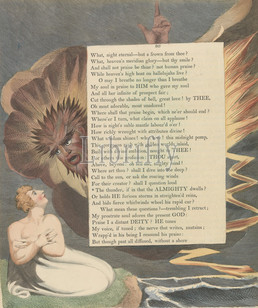 What, night eternal—but a frown from thee?
What, heaven's meridian glory—but thy smile?
And shall not praise be thine? not human praise?
While heaven's high host on hallelujahs live?
O may I breathe no longer than I breathe
My soul in praise to HIM who gave my soul
And all her infinite of prospect fair;
Cut through the shades of hell, great love! by THEE,
Oh most adorable, most unador'd!
Where shall that praise begin, which ne'er should end?
Where'er I turn, what claim on all applause!
How is night's sable mantle labour'd o'er!
How richly wrought with attributes divine!
What wisdom shines! what love! this midnight pomp,
THEE!
THOU
Where art thou? shall I dive into the deep?
Call to the sun, or ask the roaring winds
For their creator? shall I question loud
*The thunder, if in that the ALMIGHTY dwells?
Or holds HE furious storms in straighten'd reins,
And bids fierce whirlwinds wheel his rapid car?
What mean these questions?—trembling I retract;
My prostrate soul adores the present GOD:
Praise I a distant DEITY? HE tunes
My voice, if tuned; the nerve that writes, sustains;
Wrapp'd in his being I resound his praise:
But though past all diffused, without a shore